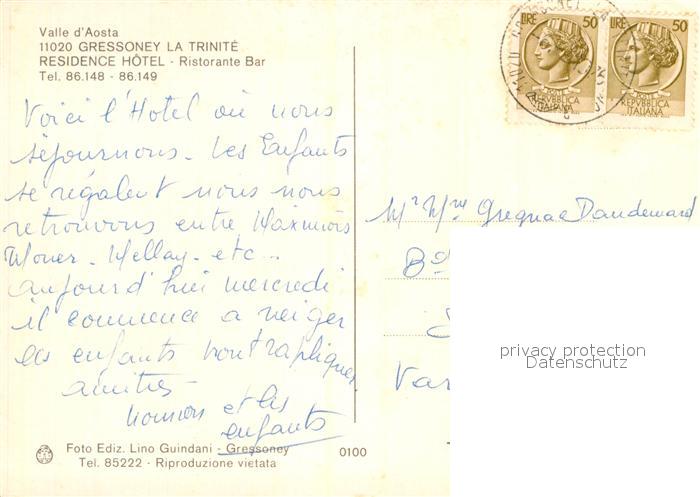 Valle d'Aosta
11020 GRESSONEY LA TRINITÉ
RESIDENCE HÔTEL - Ristorante Bar
Tel. 86.148 - 86.149
Voici l'Hotel où nous
séjournons. Les Enfants
se régalent nous nous
retrouvons entre
Mellay. etc...
aujourd'hui mercredi
il commence a neiger
les enfants vont
amitiés
et les
enfants
Foto Ediz. Lino Guindani - Gressoney
Tel. 85222 - Riproduzione vietata
0100
LIRE 50
POSTE
REPVBBLICA
ITALIANA
LIRE 50
POSTE
REPVBBLICA
ITALIANA
11020
Mr Mme Gregnac Dandemard
Bd
Var
privacy protection
Datenschutz